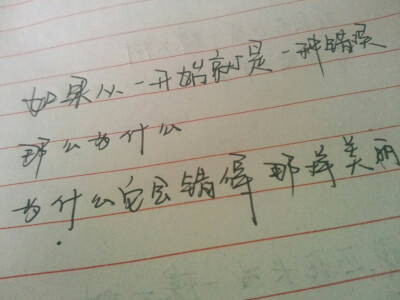 如果从一开始就是一种错误
那么为什么
为什么它会错得那样美丽